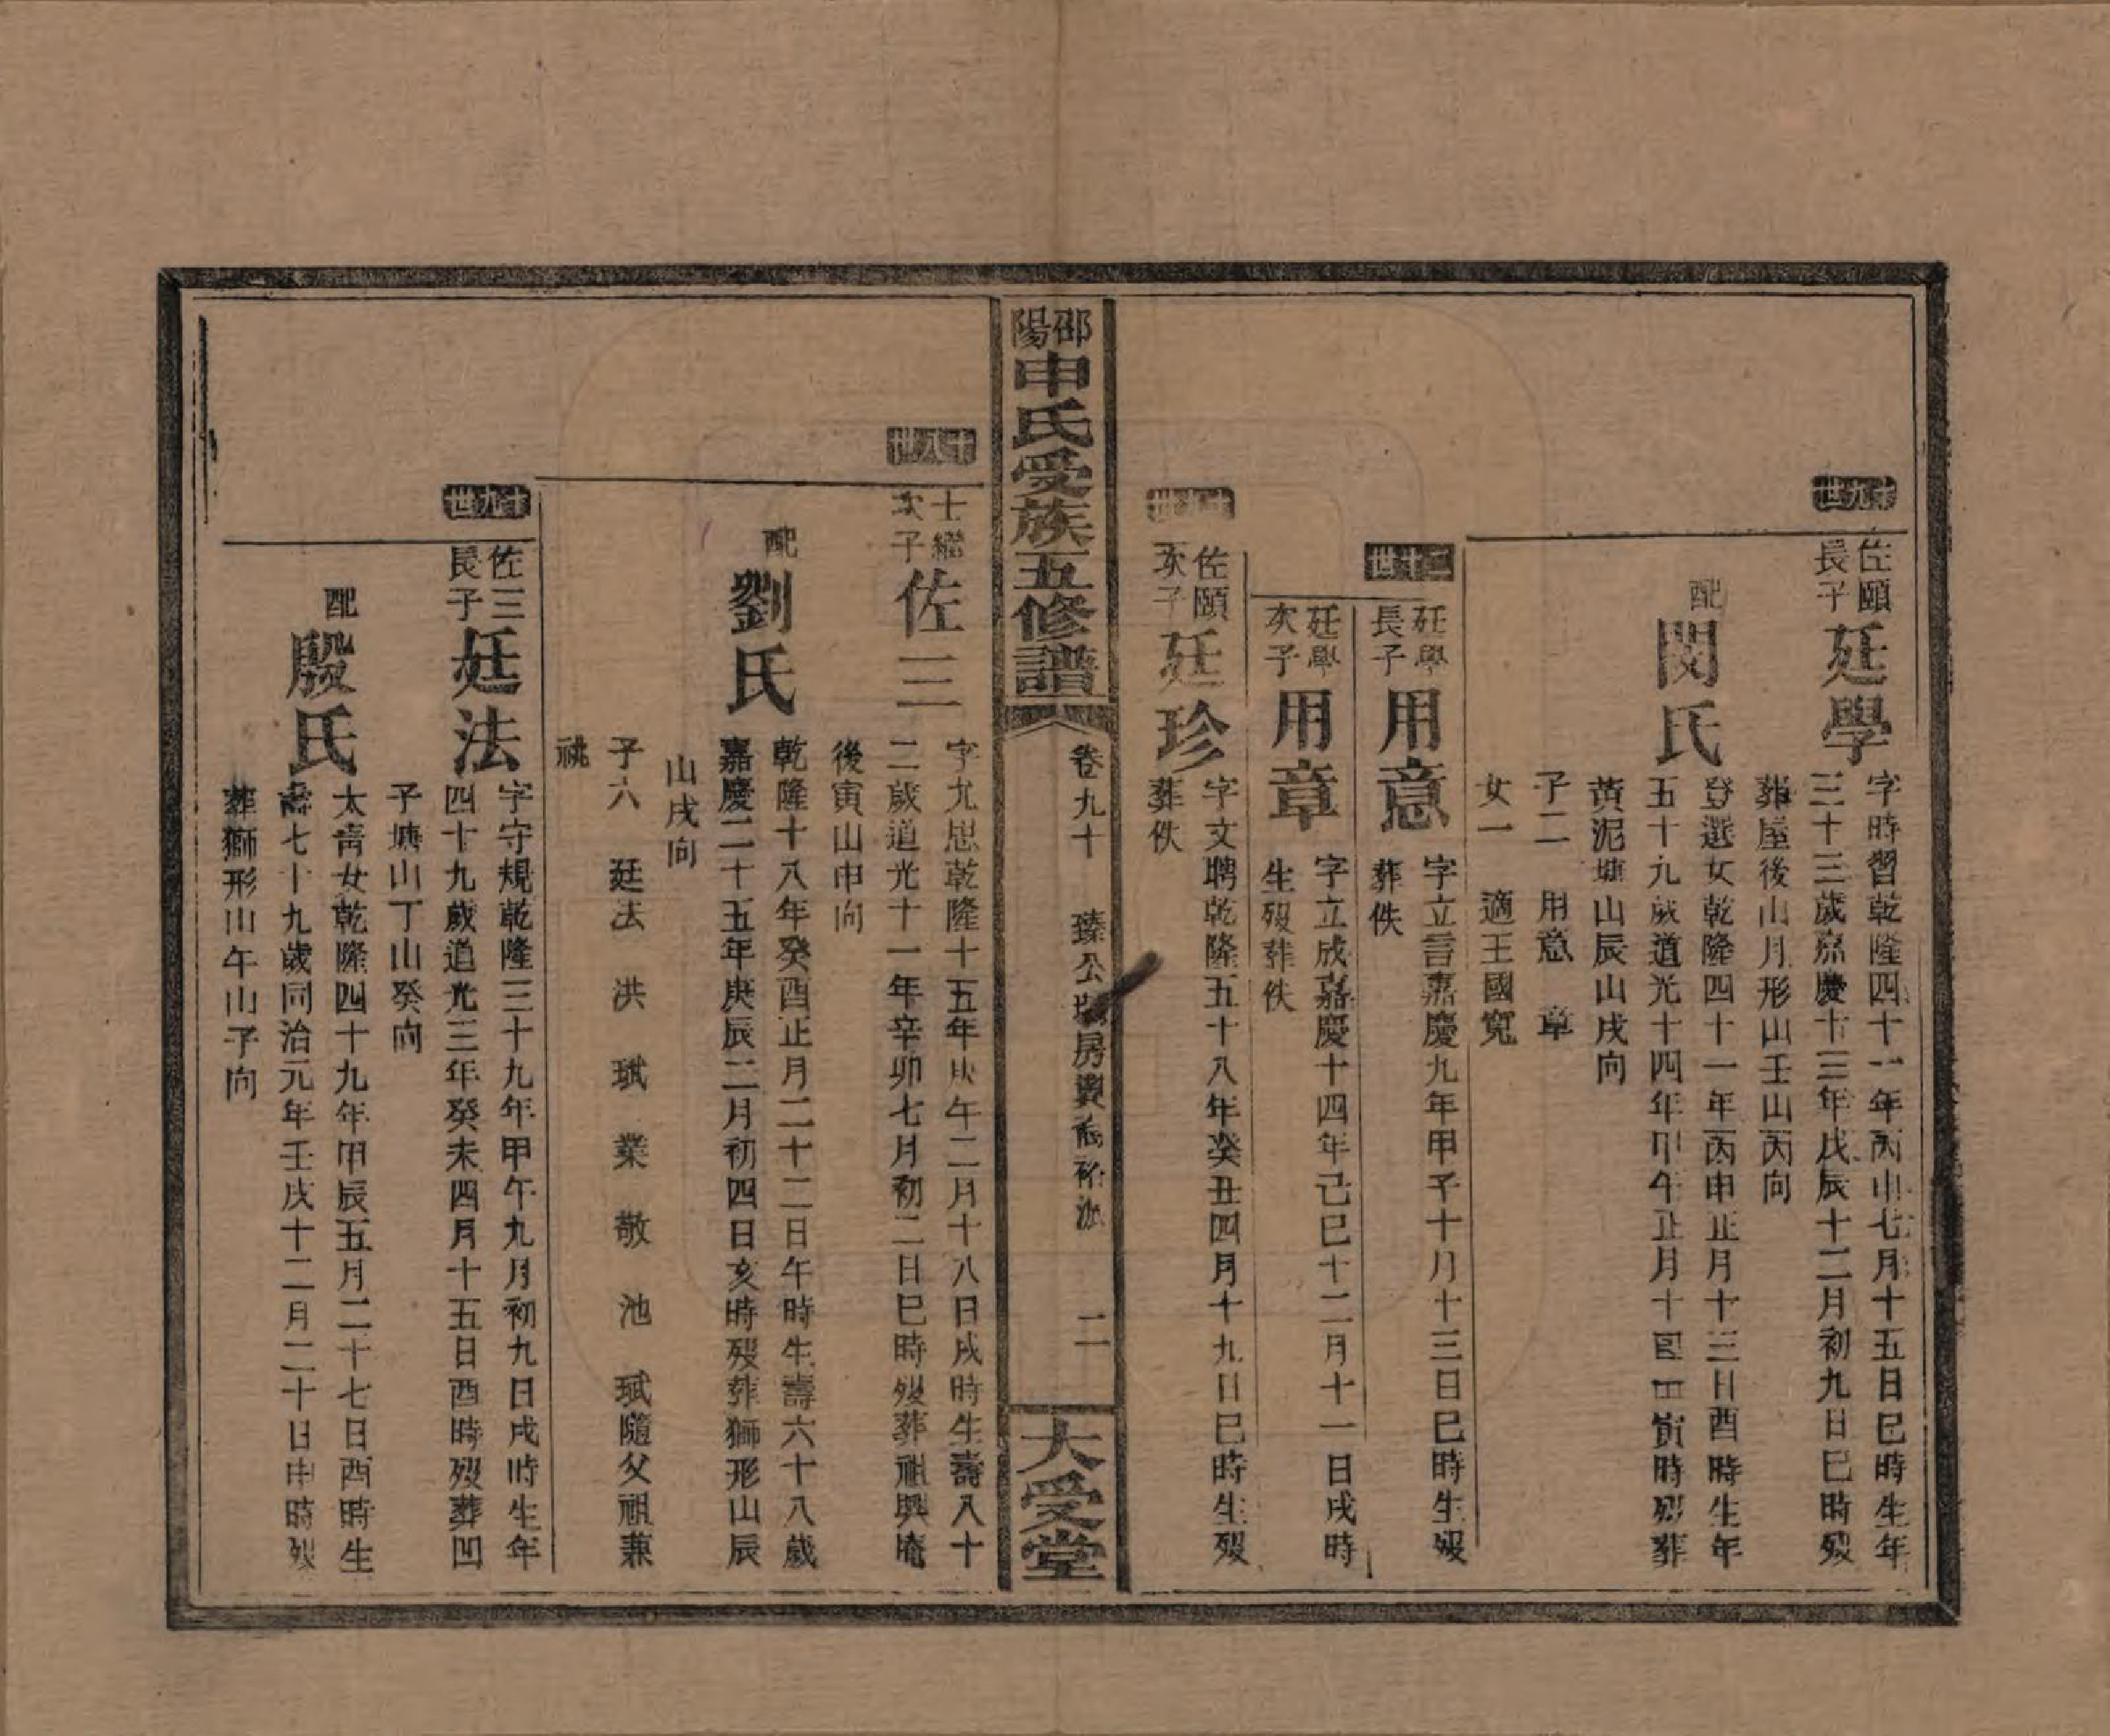 十九世
佐頤
長子
廷學
字時習乾隆四十一年丙申七月十五日巳時生年
三十三歲嘉慶十三年戊辰十二月初九日巳時歿
葬屋後山月形山壬山丙向
配
閔氏
登選女乾隆四十一年丙申正月十三日酉時生年
五十九歲道光十四年甲午正月十四日寅時歿葬
黃泥塘山辰山戌向
子二 用意 章
女一 適王國寬
二十世
廷學
長子
用意
字立言嘉慶九年甲子十月十三日巳時生歿
葬佚
廷學
次子
用章
字立成嘉慶十四年己巳十二月十一日戌時
生歿葬佚
十九世
佐頤
次子
廷珍
字文聘乾隆五十八年癸丑四月十九日巳時生歿
葬佚
邵陽
申氏受族五修譜
卷九十 臻公 房 裕派 二
大受堂
十八世
士繼
次子
佐三
字允思乾隆十五年庚午二月十八日戌時生壽八十
二歲道光十一年辛卯七月初二日巳時歿葬祖興庵
後寅山申向
配
劉氏
乾隆十八年癸酉正月二十二日午時生壽六十八歲
嘉慶二十五年庚辰二月初四日亥時歿葬獅形山辰
山戌向
子六 廷法 洪 珷 業 敬 池 珷隨父祖兼
祧
十九世
佐三
長子
廷法
字守規乾隆三十九年甲午九月初九日戌時生年
四十九歲道光三年癸未四月十五日酉時歿葬凹
子塘山丁山癸向
配
殷氏
太青女乾隆四十九年甲辰五月二十七日酉時生
壽七十九歲同治元年壬戌十二月二十日申時歿
葬獅形山午山子向